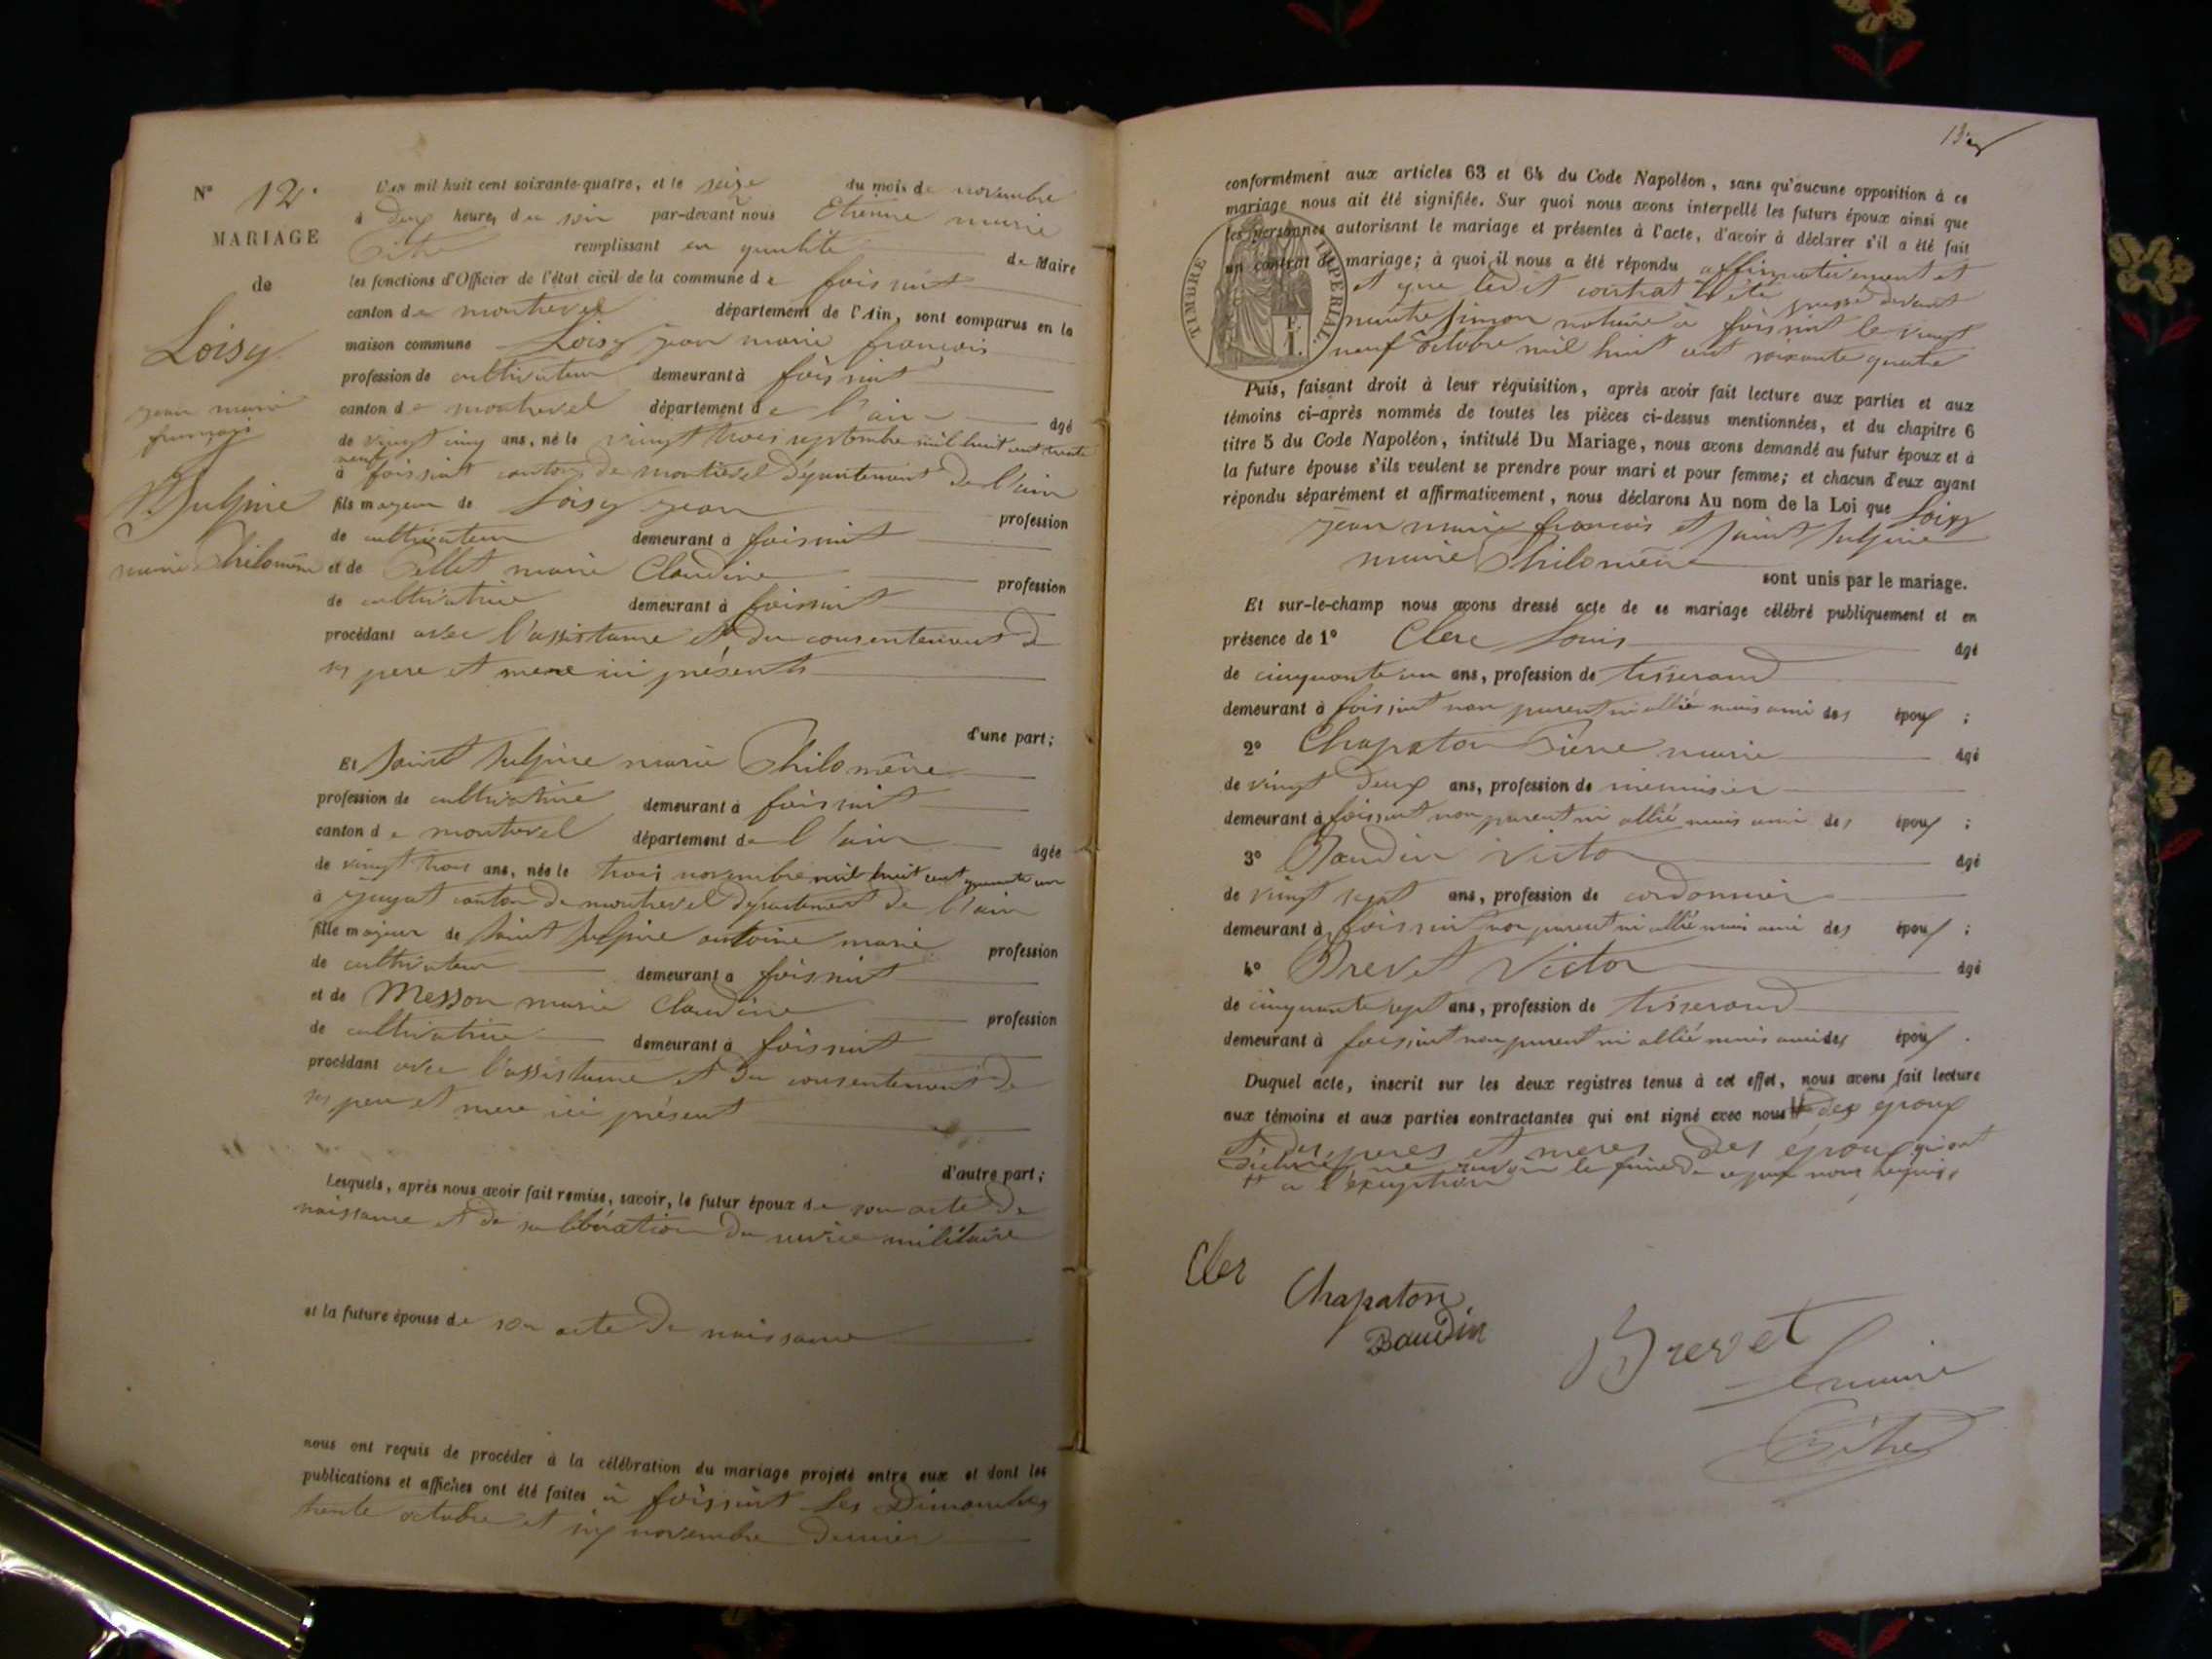 N° 12.
MARIAGE
de
Loisy
jean marie
françois
St Sulpice
marie Philomène
L'an mil huit cent soixante-quatre, et le seize du mois de novembre
à deux heures du soir par-devant nous Etienne marie
remplissant en qualité de Maire
les fonctions d'Officier de l'état civil de la commune de foissiat
canton de montrevel département de l'Ain, sont comparus en la
maison commune Loisy jean marie françois
profession de cultivateur demeurant à foissiat
canton de montrevel département de l'ain âgé
de vingt cinq ans, né le vingt trois septembre mil huit cent trente
neuf
à foissiat canton de montrevel département de l'ain
fils majeur de Loisy jean profession
de cultivateur demeurant à foissiat
et de Pellet marie Claudine profession
de cultivatrice demeurant à foissiat
procédant avec l'assistance et du consentement de
ses pere et mere ici présents
d'une part;
Et saint sulpice marie Philomène
profession de cultivatrice demeurant à foissiat
canton de montrevel département de l'ain âgée
de vingt trois ans, née le trois novembre mil huit cent quarante un
à jayat canton de montrevel département de l'ain
fille majeur de saint sulpice antoine marie profession
de cultivateur demeurant à foissiat
et de Messon marie Claudine profession
de cultivatrice demeurant à foissiat
procédant avec l'assistance et du consentement de
ses pere et mere ici présent
d'autre part;
Lesquels, après nous avoir fait remise, savoir, le futur époux de son acte de
naissance et de sa libération du service militaire
et la future épouse de son acte de naissance
nous ont requis de procéder à la célébration du mariage projeté entre eux et dont les
publications et affiches ont été faites à foissiat les Dimanches
trente octobre et six novembre dernier
conformément aux articles 63 et 64 du Code Napoléon, sans qu'aucune opposition à ce
mariage nous ait été signifiée. Sur quoi nous avons interpellé les futurs époux ainsi que
les personnes autorisant le mariage et présentes à l'acte, d'avoir à déclarer s'il a été fait
un contrat de mariage; à quoi il nous a été répondu affirmativement et
et que ledit contrat a été passé devant
maitre simon notaire à foissiat le vingt
neuf octobre mil huit cent soixante quatre
TIMBRE IMPERIAL.
1 F.
Puis, faisant droit à leur réquisition, après avoir fait lecture aux parties et aux
témoins ci-après nommés de toutes les pièces ci-dessus mentionnées, et du chapitre 6
titre 5 du Code Napoléon, intitulé Du Mariage, nous avons demandé au futur époux et à
la future épouse s'ils veulent se prendre pour mari et pour femme; et chacun d'eux ayant
répondu séparément et affirmativement, nous déclarons Au nom de la Loi que Loisy
jean marie françois et saint sulpice
marie Philomène
sont unis par le mariage.
Et sur-le-champ nous avons dressé acte de ce mariage célébré publiquement et en
présence de 1° Clerc Louis âgé
de cinquante un ans, profession de tisserand
demeurant à foissiat non parent ni allié mais ami des époux ;
2° Chapaton Pierre marie âgé
de vingt deux ans, profession de menuisier
demeurant à foissiat non parent ni allié mais ami des époux ;
3° Baudin Victor âgé
de vingt sept ans, profession de cordonnier
demeurant à foissiat non parent ni allié mais ami des époux ;
4° Brevet Victor âgé
de cinquante sept ans, profession de tisserand
demeurant à foissiat non parent ni allié mais ami des époux .
Duquel acte, inscrit sur les deux registres tenus à cet effet, nous avons fait lecture
aux témoins et aux parties contractantes qui ont signé avec nous # des époux
et des peres et meres des époux qui ont
déclaré ne savoir le faire de ce par nous requis.
# a l'exception
Cler
Chapaton
Baudin
Brevet
le maire